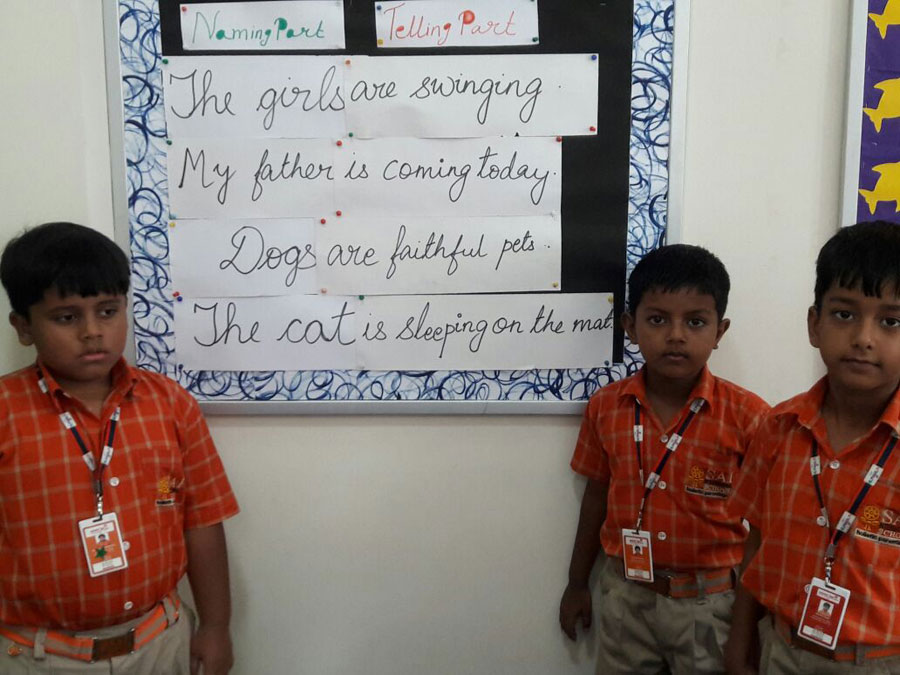 Naming Part Telling Part
The girls are swinging.
My father is coming today.
Dogs are faithful pets.
The cat is sleeping on the mat.